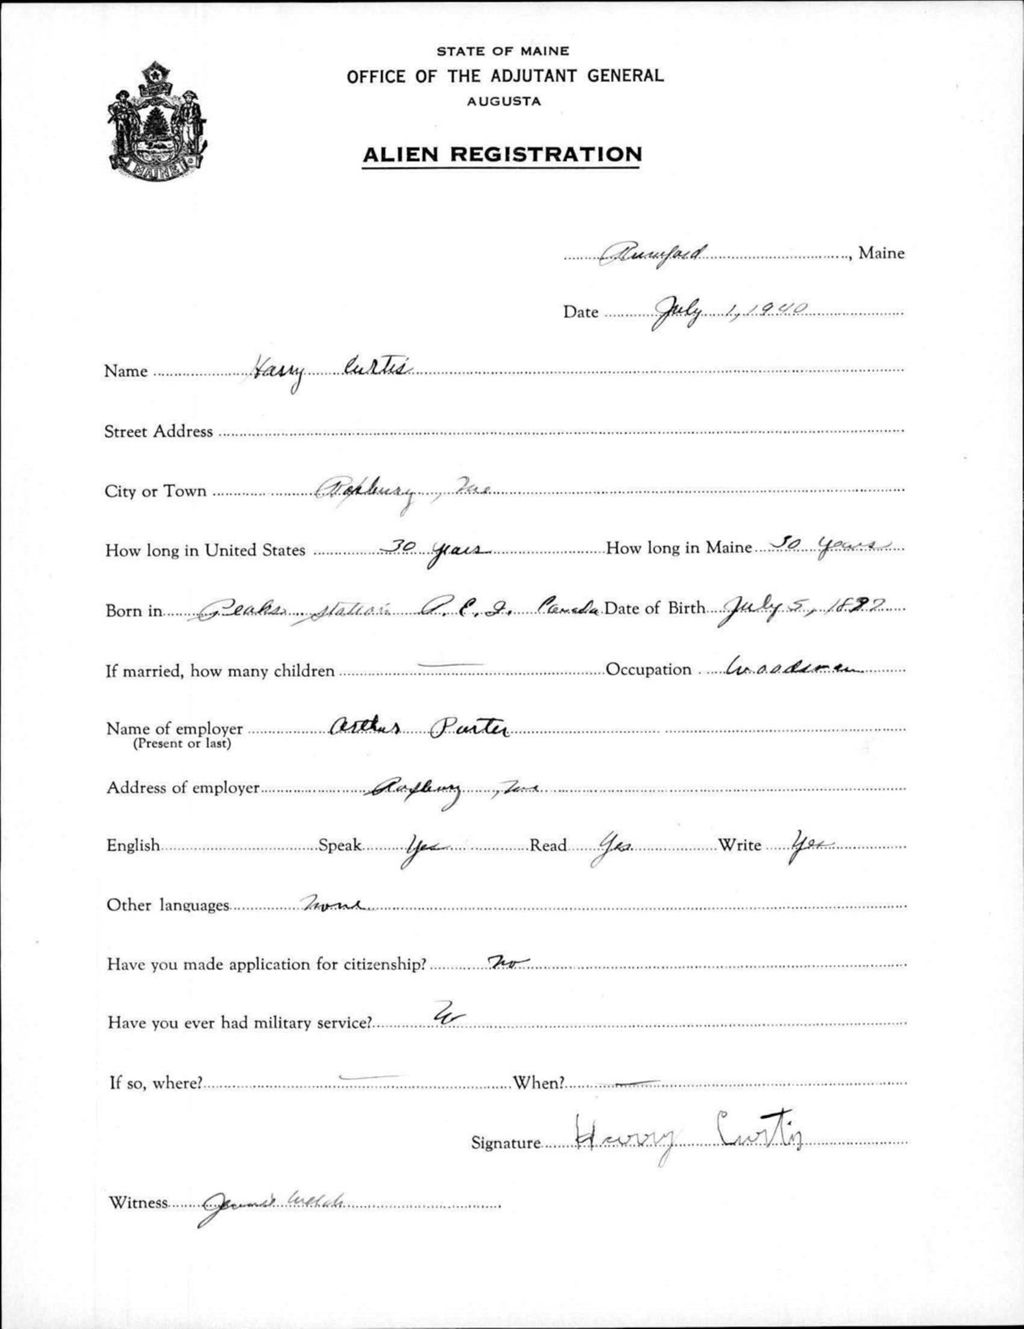 STATE OF MAINE
OFFICE OF THE ADJUTANT GENERAL
AUGUSTA
ALIEN REGISTRATION
MAINE
Rumford, Maine
Date July 1, 1940
Name Harry Curtis
Street Address
City or Town Roxbury, Me
How long in United States 30 years How long in Maine 30 years
Born in Peakes station P. E. I. Canada Date of Birth July 5,
If married, how many children — Occupation Woodsman
Name of employer Arthur Porter
(Present or last)
Address of employer Roxbury, Me
English Speak Yes Read Yes Write Yes
Other languages None
Have you made application for citizenship? No
Have you ever had military service?
If so, where? — When? —
Signature Harry Curtis
Witness Jennie Welch